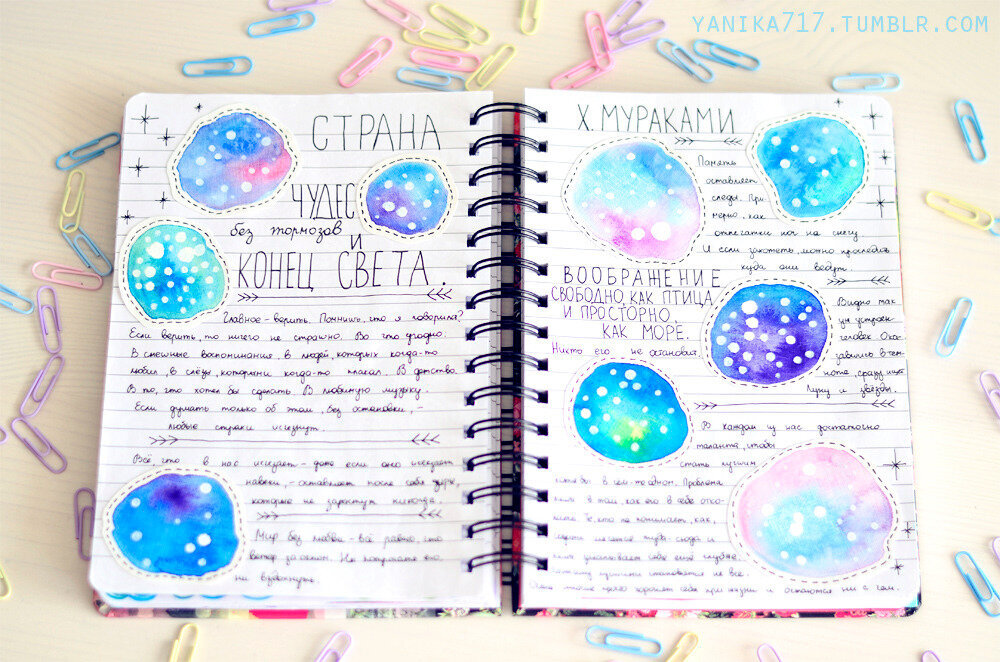 YANIKA717.TUMBLR.COM
СТРАНА
ЧУДЕС
без тормозов
и
КОНЕЦ СВЕТА.
Главное – верить. Помнишь, что я говорила?
Если верить, то ничего не страшно. Во что угодно.
В смешные воспоминания, в людей, которых когда-то
любил, в слёзы, которыми когда-то плакал. В детство.
В то, что хотел бы сделать. В любимую музыку.
Если думать только об этом, без остановки, –
любые страхи исчезнут.
Всё, что в нас исчезает – даже если оно исчезает
навеки, – оставляет после себя дыры,
которые не зарастут никогда.
Мир без любви – всё равно что
ветер за окном. Ни потрогать его,
ни вдохнуть.
Х. МУРАКАМИ
Память
оставляет
следы. При-
мерно, как
отпечатки ног на снегу
И если захотеть, можно проследить
куда они ведут.
ВООБРАЖЕНИЕ
СВОБОДНО, КАК ПТИЦА
И ПРОСТОРНО
КАК МОРЕ.
Никто его не остановил.
Видно так
уж устроен
человек. Ока-
завшись в тем-
ноте, сразу ищет
Луну и звёзды.
В каждом из нас достаточно
таланта, чтобы
стать лучшим
хотя бы в чем-то одном. Проблема
лишь в том, как его в себе отко-
пать. Те, кто не понимает, как,
годами мечется туда-сюда и
лишь закапывает себя ещё глубже.
Поэтому лучшими становятся не все.
многие хоронят себя при жизни и остаются ни с чем.